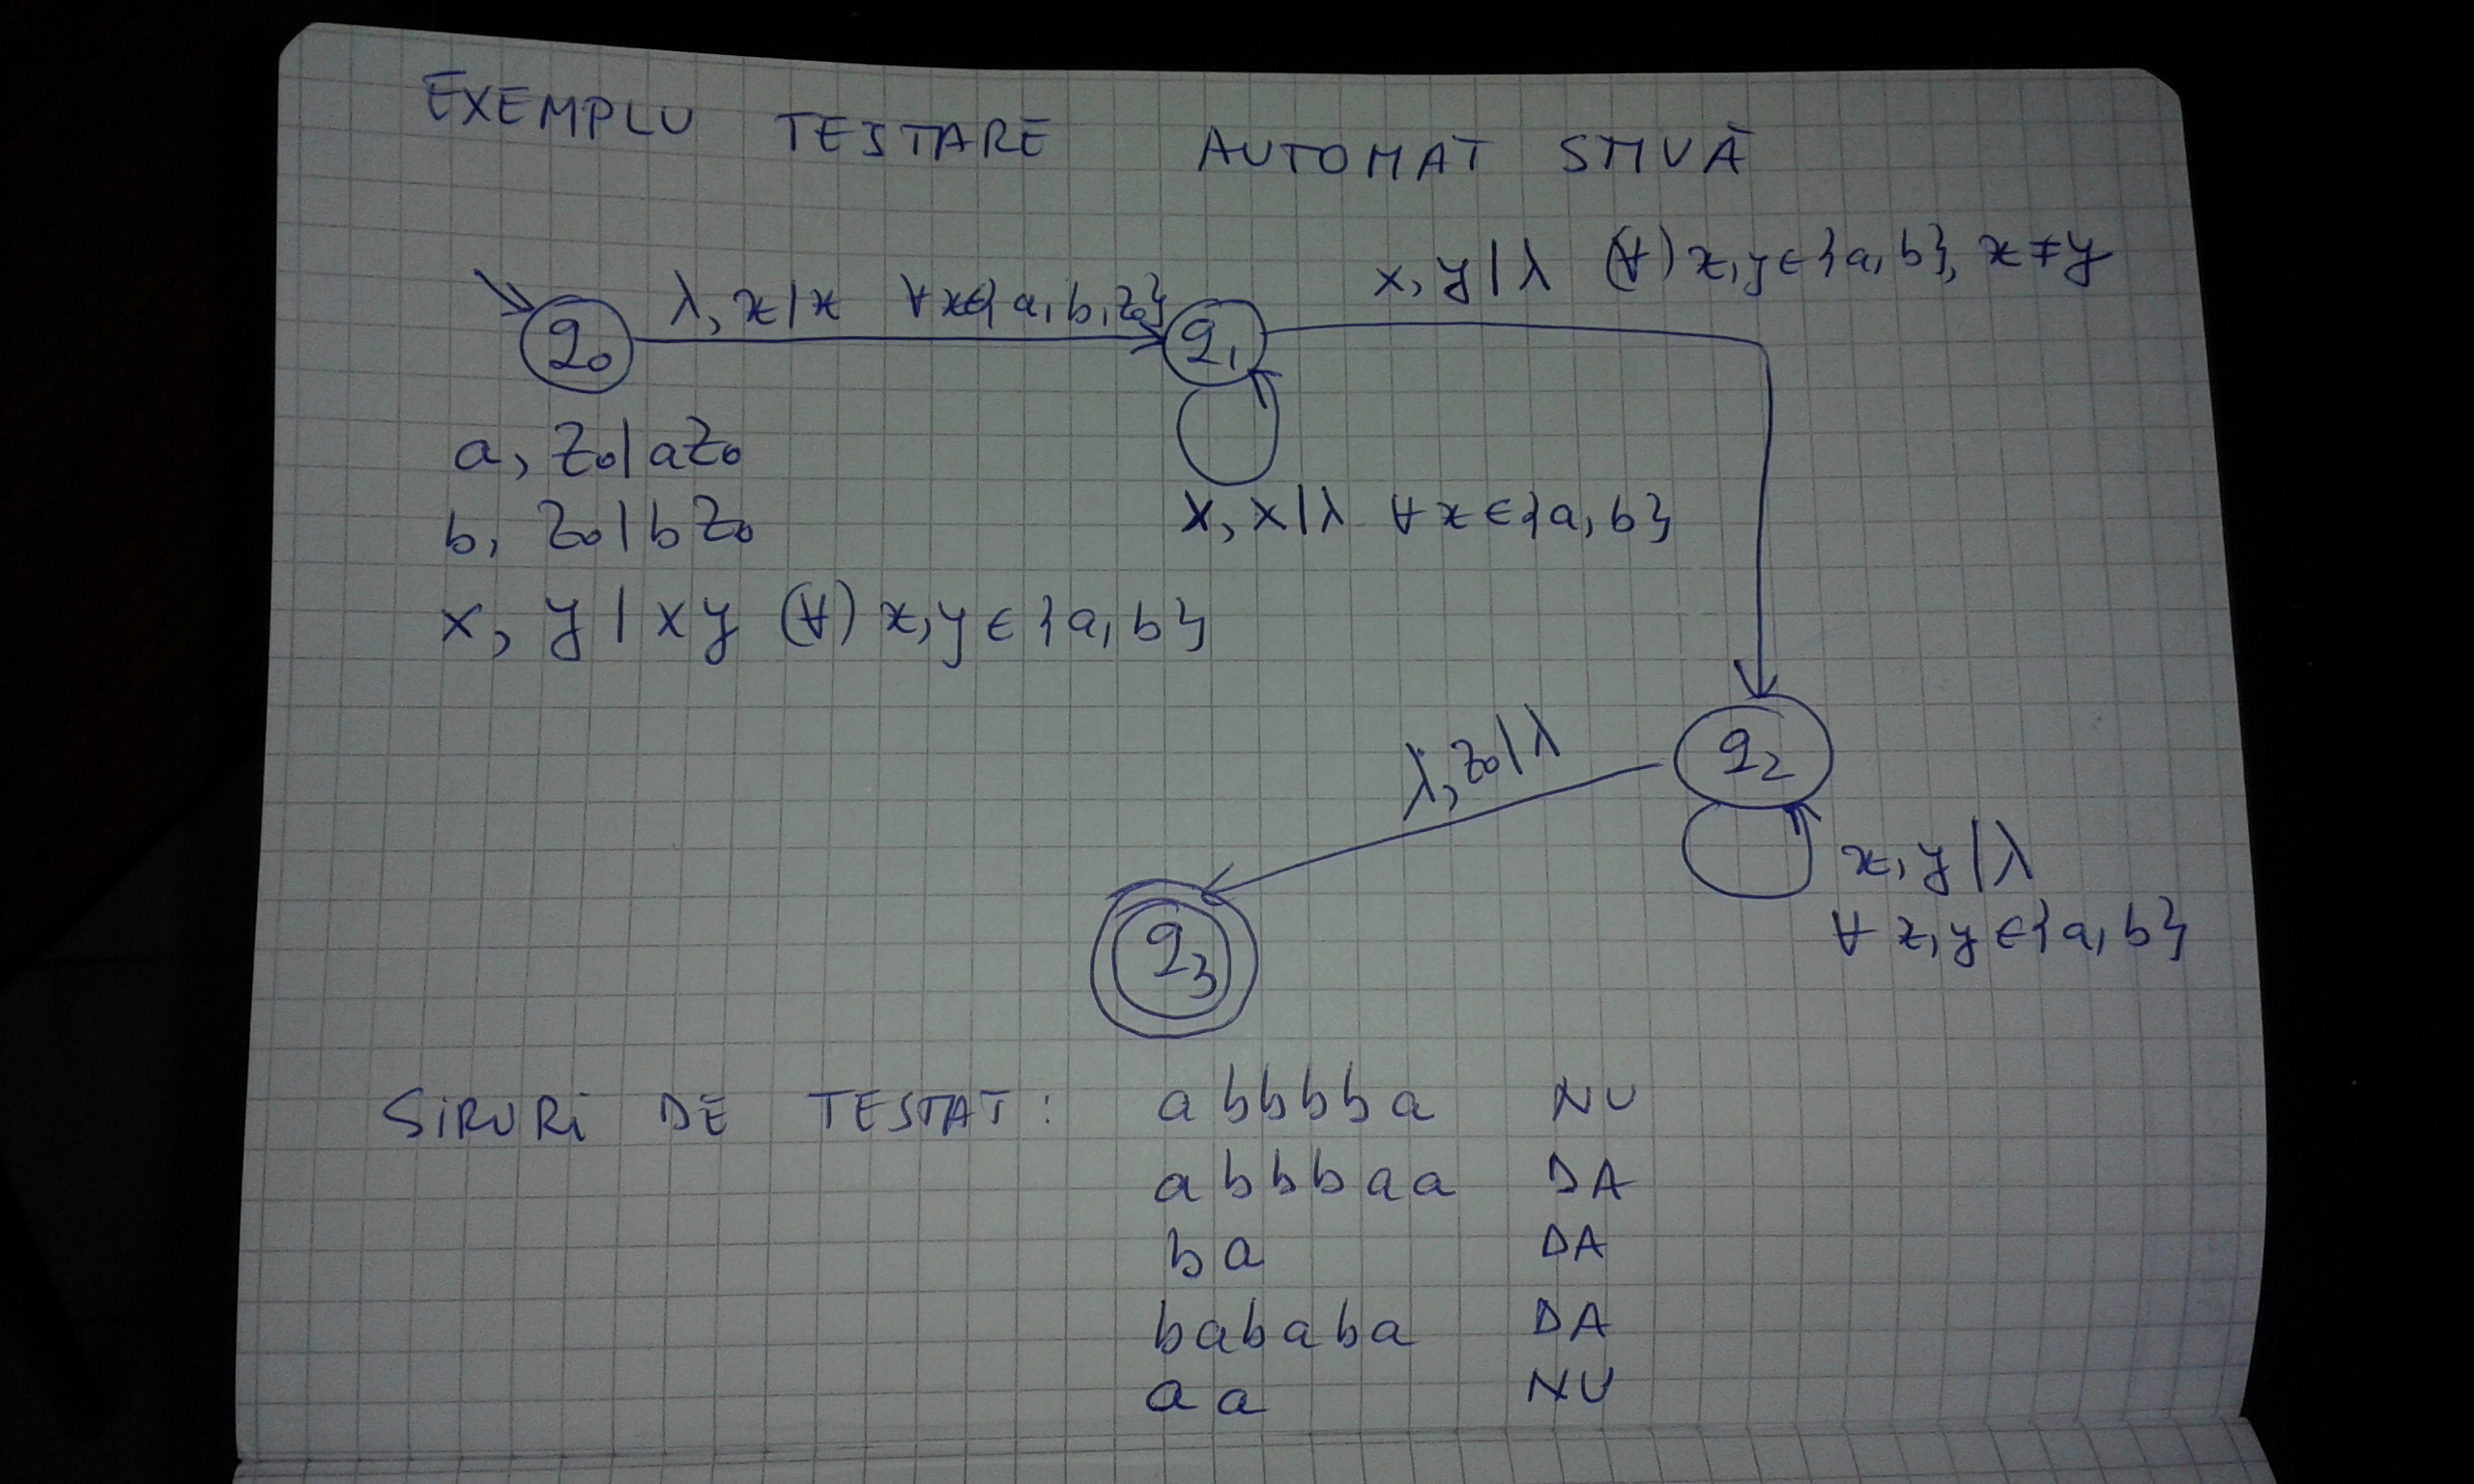 EXEMPLU TESTARE AUTOMAT STIVĂ
λ, x|x ∀x∈{a,b,z₀}
x, y|λ (∀) x,y∈{a,b}, x≠y
q₀
q₁
a, z₀|az₀
b, z₀|bz₀
x, y|xy (∀) x,y ∈ {a,b}
x, x|λ ∀ x ∈ {a,b}
λ, z₀|λ
q₂
x, y|λ
∀ x,y ∈ {a,b}
q₃
SiRURi DE TESTAT:
abbbba NU
abbbaa DA
ba DA
bababa DA
aa NU